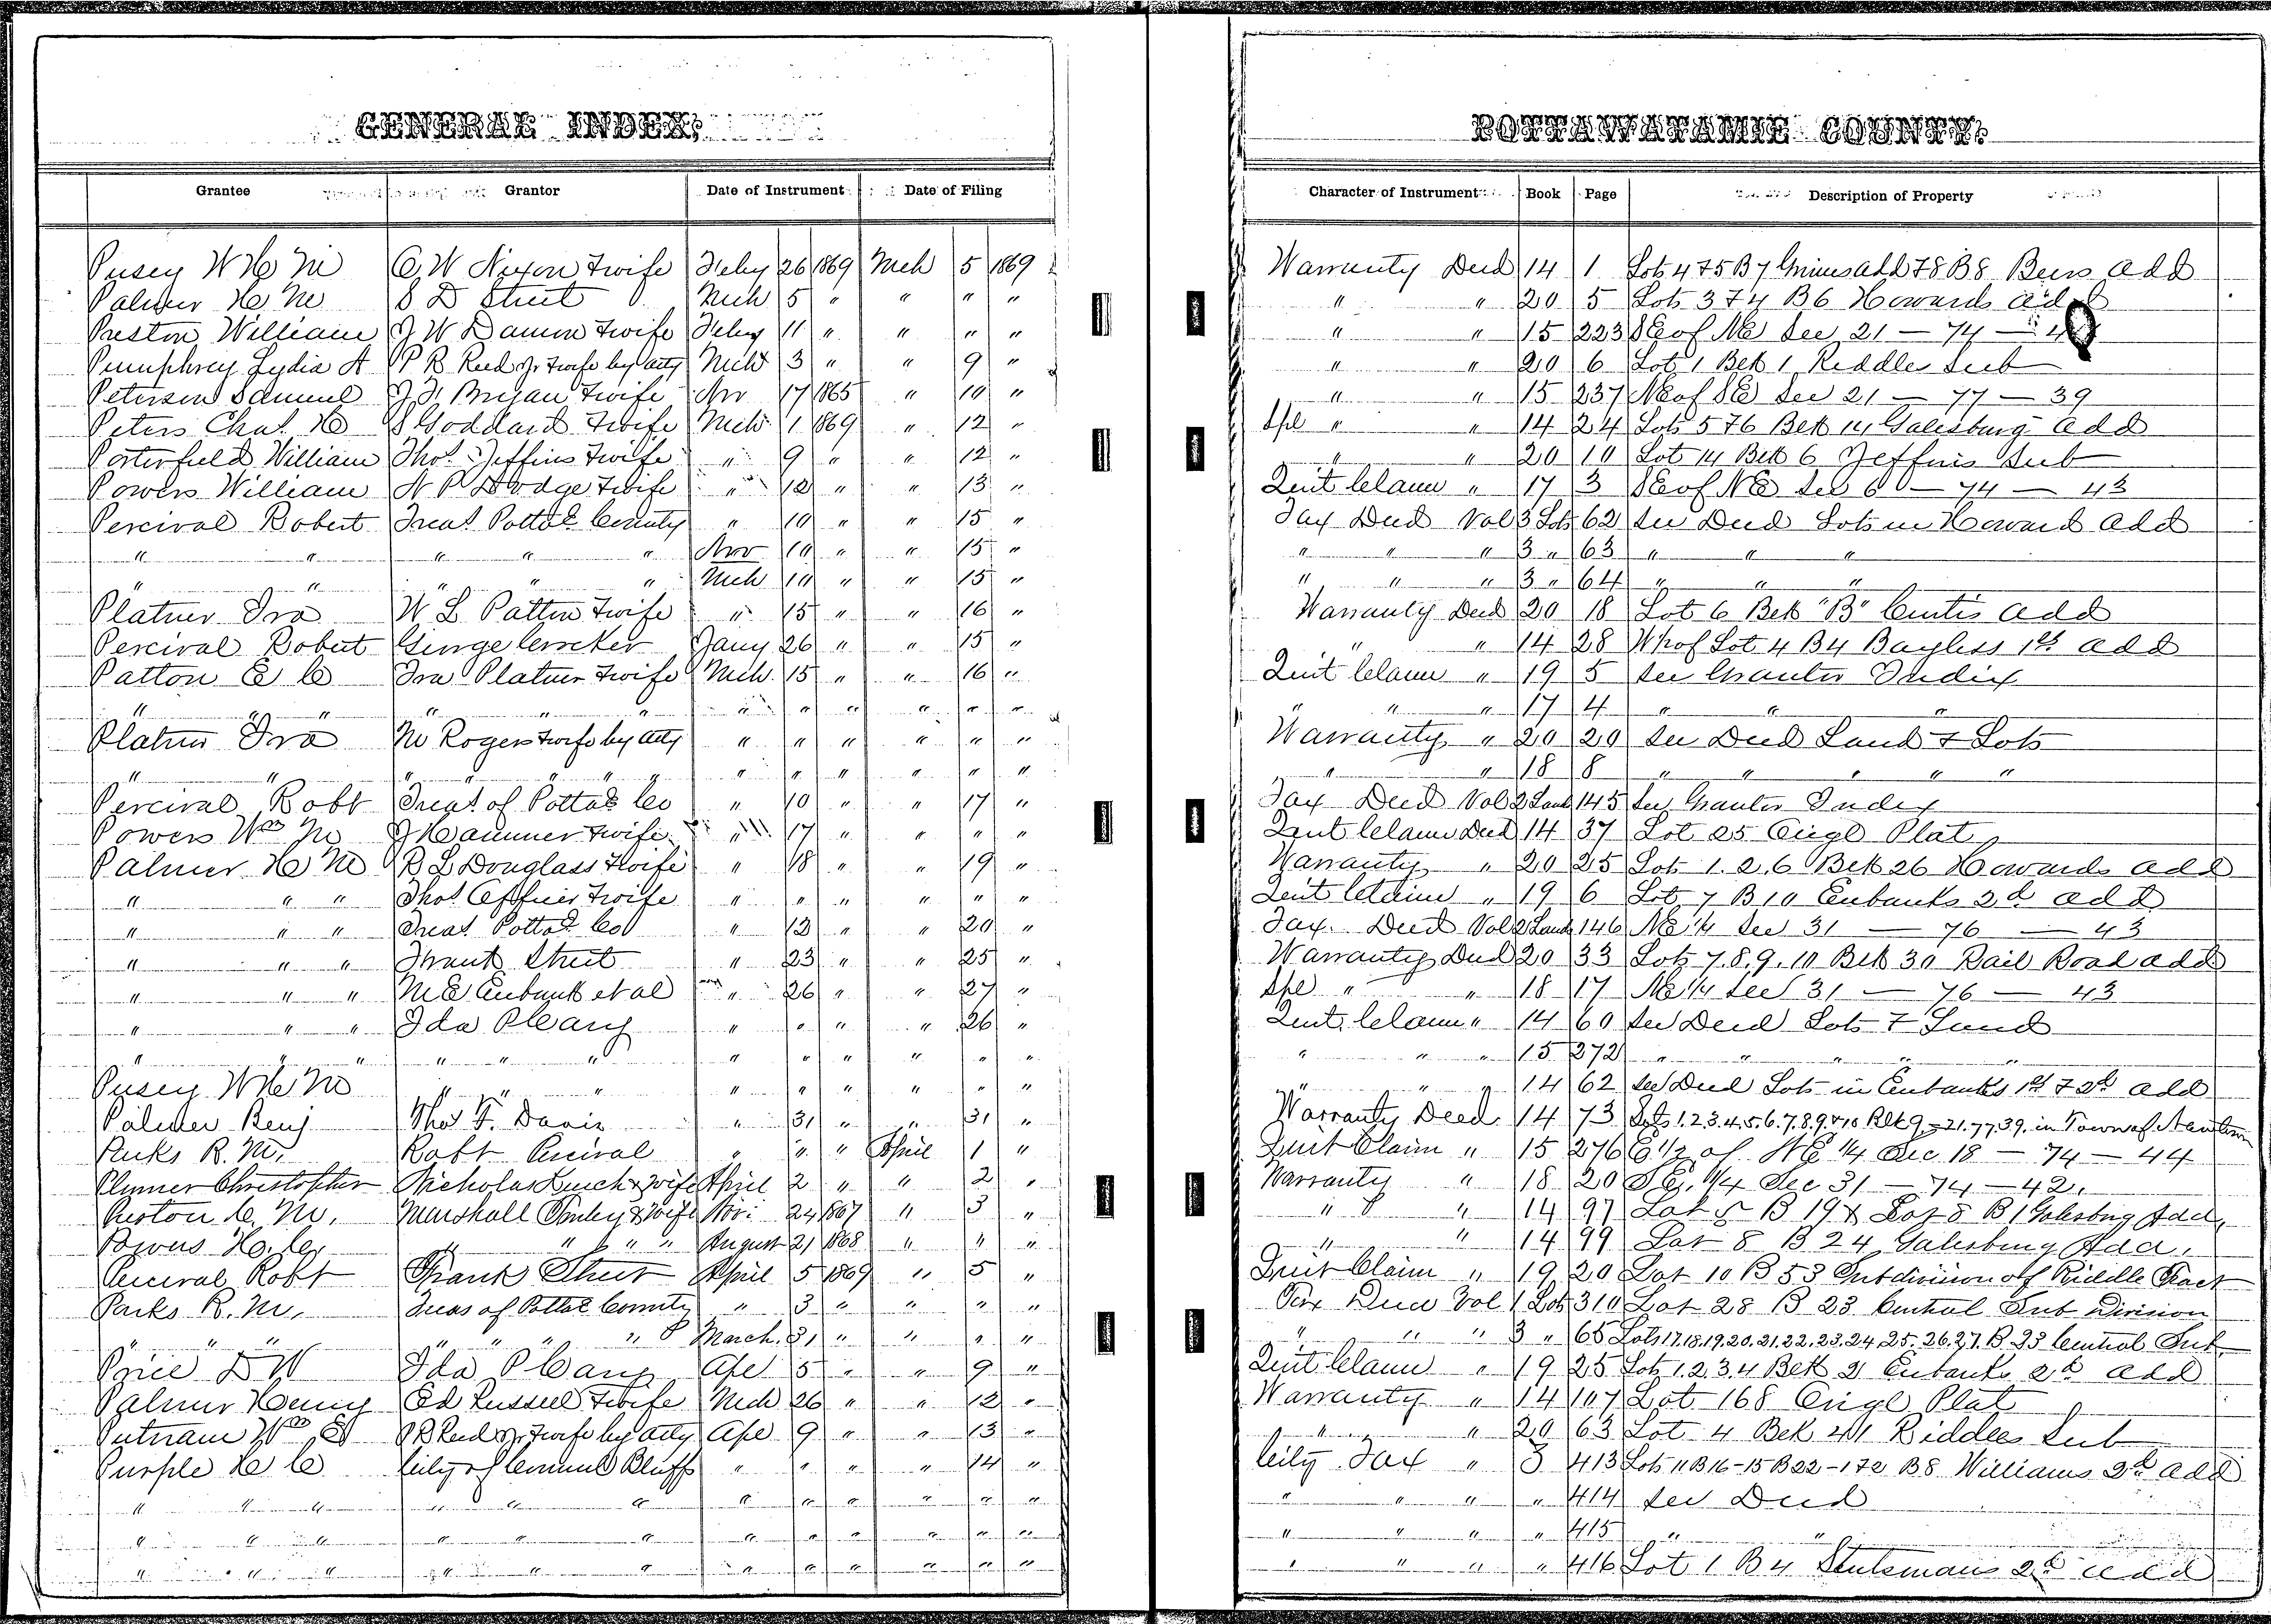 GENERAL INDEX,
POTTAWATAMIE COUNTY.
Grantee Grantor Date of Instrument Date of Filing
Character of Instrument Book Page Description of Property
Pusey W H M O. W Nixon & wife Feby 26 1869 Mch 5 1869 Warranty Deed 14 1 Lots 4 & 5 B 7 Grimes add & 8 B 8 Beers add
Palmer H M S D Street Mch 5 " " " " " " 20 5 Lots 3 & 4 B 6 Howards add
Preston William J W Damon & wife Feby 11 " " " " " " 15 223 SE of NE Sec 21 — 74 —
Pumphrey Lydia A P R Reed Jr & wife by atty Mch 3 " " 9 " " " 20 6 Lot 1 Blk 1 Riddles Sub
Peterson Samuel J. F. Bryan & wife Nov 17 1865 " 10 " " " 15 237 NE of SE Sec 21 — 77 — 39
Peters Chas. H S Goddard & wife Mch 1 1869 " 12 " Spl " " 14 24 Lots 5 & 6 Blk 14 Galesburg add
Porterfield William Thos Jeffries & wife " 9 " " 12 " " " 20 10 Lot 14 Blk 6 Jeffries Sub
Powers William N P Dodge & wife " 12 " " 13 " Quit Claim " 17 3 SE of NE Sec 6 — 74 — 43
Percival Robert Treas Pottae County " 10 " " 15 " Tax Deed Vol 3 Lots 62 See Deed Lots in Howard add
" " " " " Nov 10 " " 15 " " " " 3 " 63 " " "
" " " " " Mch 10 " " 15 " " " " 3 " 64 " " "
Platner Ira W L Patton & wife " 15 " " 16 " Warranty Deed 20 18 Lot 6 Blk "B" Curtis add
Percival Robert George Cericker Jany 26 " " 15 " " " 14 28 W hf of Lot 4 B 4 Bayliss 1st add
Patton E C Ira Platner & wife Mch 15 " " 16 " Quit Claim " 19 5 See Grantor Index
" " " " " " " " " " " " " " " 17 4 " " "
Platner Ira M Rogers & wife by atty " " " " " " Warranty " 20 20 See Deed Land & Lots
" " " " " " " " " " " " " " 18 8 " " " " "
Percival Robt Treas of Pottae Co " 10 " " 17 " Tax Deed Vol 2 Land 145 See Grantor Index
Powers Wm M J Hammer & wife " 17 " " " " Quit Claim Deed 14 37 Lot 25 Origl Plat
Palmer H M R L Douglass & wife " 18 " " 19 " Warranty " 20 25 Lots 1. 2. 6 Blk 26 Howards add
" " " Thos Jeffries & wife " " " " " " Quit Claim " 19 6 Lot 7 B 10 Eubanks 2d add
" " " Treas Pottae Co " 12 " " 20 " Tax Deed Vol 2 Land 146 NE 1/4 Sec 31 — 76 — 43
" " " Frank Street " 23 " " 25 " Warranty Deed 20 33 Lots 7. 8. 9. 10 Blk 30 Rail Road add
" " " M E Eubank et al " 26 " " 27 " Spl " " 18 17 NE 1/4 Sec 31 — 76 — 43
" " " Ida P Cary " " " " 26 " Quit Claim " 14 60 See Deed Lots & Land
" " " " " " " " " " " " " " " 15 272 " " " " "
Pusey W H M " " " " " " " " " " " " 14 62 See Deed Lots in Eubanks 1st & 2d add
Palmer Benj Thos F. Davis " 31 " " 31 " Warranty Deed 14 73 Lots 1.2.3.4.5.6.7.8.9 & 10 Blk 9 - 21.77.39. in Town of Newtown
Parks R. M. Robt Percival " " " April 1 " Quit Claim " 15 276 E 1/2 of NE 1/4 Sec 18 — 74 — 44
Plumer Christopher Nicholas & wife April 2 " " 2 " Warranty " 18 20 SE. 1/4 Sec 31 — 74 — 42.
Preston C. M. Marshall & wife Nov. 24 1867 " 3 " " " 14 97 Lot 5 B 19 & Lot 8 B 1 Galesburg Add.
Powers " " " August 21 1868 " " " " " 14 99 Lot 8 B 24 Galesburg Add.
Percival Robt Frank Street April 5 1869 " 5 " Quit Claim " 19 20 Lot 10 B 53 Subdivision of Riddle Tract
Parks R. M. Treas of Pottae County " 3 " " " " Tax Deed Vol 1 Lots 310 Lot 28 B 23 Central Sub Division
" " " " " " " March. 31 " " " " " " " 3 " 65 Lots 17.18.19.20.21.22.23.24.25.26.27. B. 23 Central Sub.
Price D W Ida P Cary Apl 5 " " 9 " Quit Claim " 19 25 Lots 1. 2. 3. 4 Blk 2 Eubanks 2d add
Palmer Henry Ed Russell & wife Mch 26 " " 12 " Warranty " 14 107 Lot 168 Origl Plat
Putnam Wm E P R Reed Jr & wife by atty Apl 9 " " 13 " " " 20 63 Lot 4 Blk 41 Riddles Sub
Purple H C City of Council Bluffs " " " " 14 " City Tax " 3 413 Lots 11 B 16 - 15 B 22 - 1 & 2 B 8 Williams 2d add
" " " " " " " " " " " " " " " " " 414 See Deed
" " " " " " " " " " " " " " " " 415 " "
" " " " " " " " " " " " " " " " " 416 Lot 1 B 4 Stutsmans 2d add